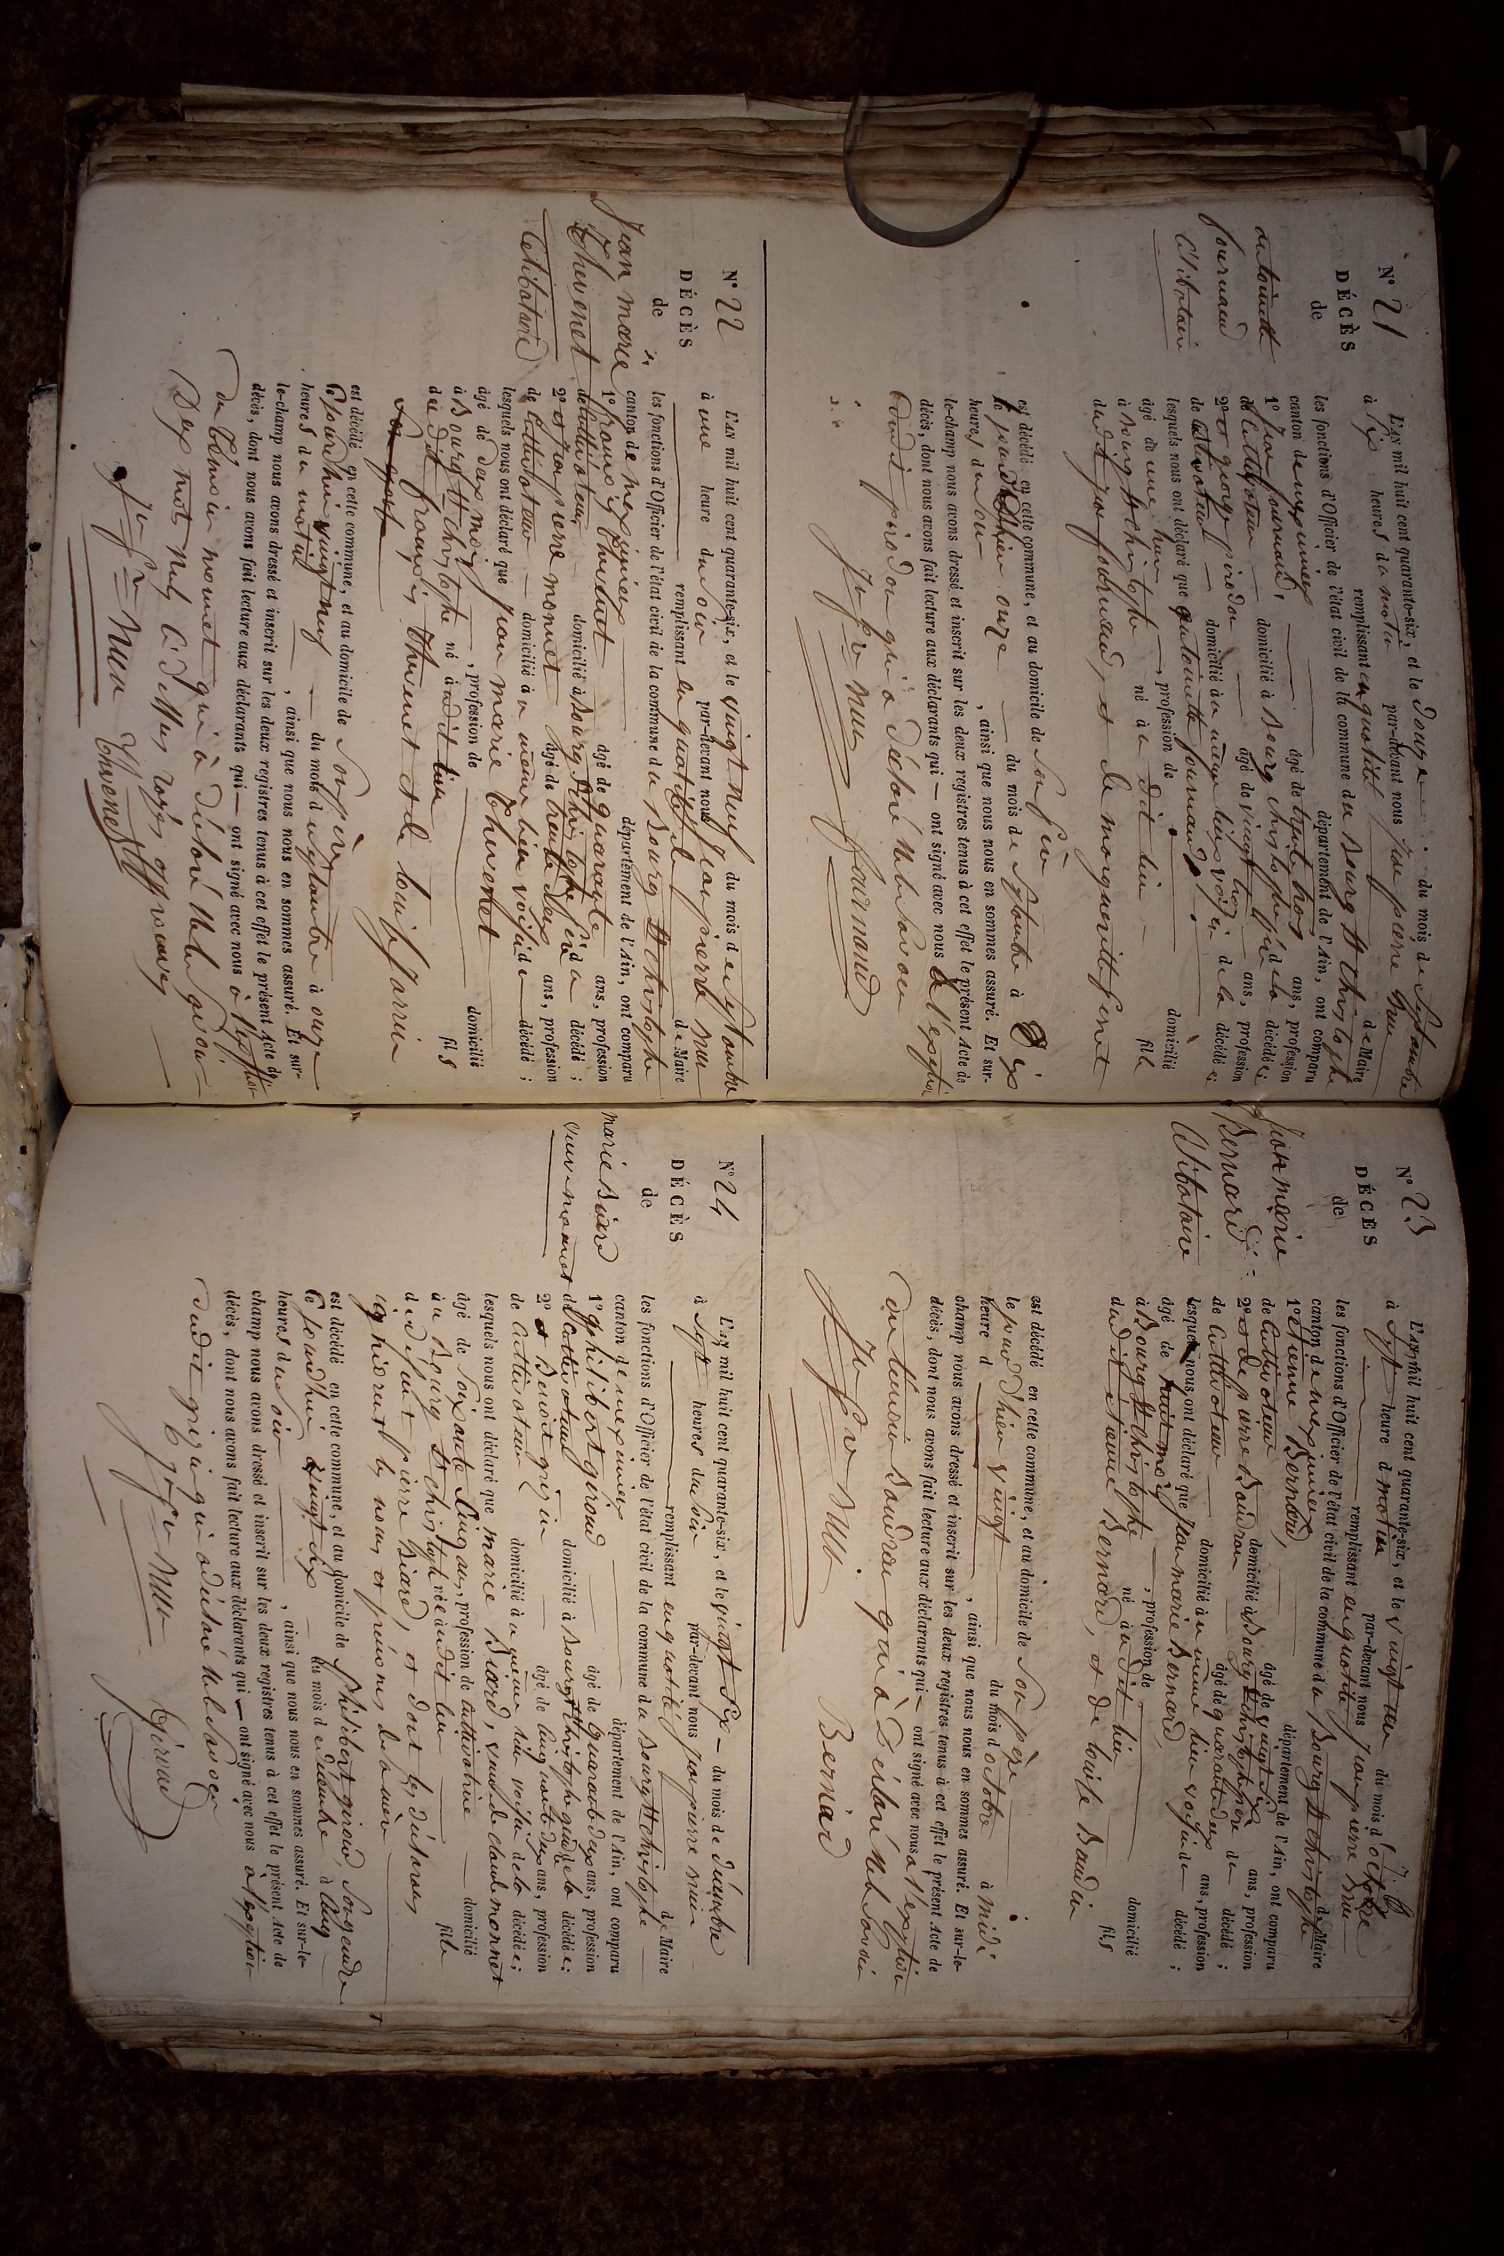 N° 21
DÉCÈS
de
antoinette
fournaud
Célibataire
L'an mil huit cent quarante-six, et le douze du mois de Septembre
à Six heures du matin par-devant nous jean pierre
remplissant en qualité de Maire
les fonctions d'Officier de l'état civil de la commune du Bourg St christophe
canton de meximieux département de l'Ain, ont comparu
1° jean fournaud, âgé de ans, profession
de Cultivateur domicilié à Bourg christophe père de la décédée;
2° et pirodon âgé de vingt ans, profession
de Cultivateur domicilié à même lieu voisin de la décédée;
lesquels nous ont déclaré que antoinette fournaud
âgé de une heure, profession de domicilié
à Bourg St christophe né au dit lieu fille
dudit jean fournaud, et de margueritte
est décédé en cette commune, et au domicile de Son père
le jour d'hier onze du mois de Septembre à Dix
heures du Soir, ainsi que nous nous en sommes assuré. Et sur-
le-champ nous avons dressé et inscrit sur les deux registres tenus à cet effet le présent Acte de
décès, dont nous avons fait lecture aux déclarants qui ont signé avec nous à l'exception
dudit pirodon qui à déclaré ne le Savoir
fournaud
N° 22
DÉCÈS
de
Jean marie
Thevenet
Célibataire
L'an mil huit cent quarante-six, et le vingt neuf du mois de Septembre
à une heure du Soir par-devant nous jean pierre
remplissant en qualité de Maire
les fonctions d'Officier de l'état civil de la commune du Bourg St christophe
canton de meximieux département de l'Ain, ont comparu
1° françois thevenet âgé de quarante ans, profession
de Cultivateur domicilié à Bourg St christophe père du décédé;
2° et jean pierre monnet âgé de trente deux ans, profession
de Cultivateur domicilié à même lieu voisin du décédé;
lesquels nous ont déclaré que jean marie Thevenet
âgé de deux mois, profession de domicilié
à Bourg St christophe né audit lieu fils
du dit françois thevenet et de louise
est décédé en cette commune, et au domicile de Son père
le jourd'hui vingt neuf du mois de Septembre à onze
heures du matin, ainsi que nous nous en sommes assuré. Et sur-
le-champ nous avons dressé et inscrit sur les deux registres tenus à cet effet le présent Acte de
décès, dont nous avons fait lecture aux déclarants qui ont signé avec nous à l'exception
du témoin monnet qui à déclaré ne le Savoir
Dix mot nuls ci dessus rayés approuvés
Thevenet
N° 23
DÉCÈS
de
Jean marie
Bernard
Célibataire
L'an mil huit cent quarante-six, et le vingt un du mois d'octobre
à Sept heure du matin par-devant nous jean pierre
remplissant en qualité de Maire
les fonctions d'Officier de l'état civil de la commune du Bourg St christophe
canton de meximieux département de l'Ain, ont comparu
1° etienne Bernard, âgé de vingt Six ans, profession
de Cultivateur domicilié à Bourg St christophe père du décédé;
2° et de pierre Baudrau âgé de quarante deux ans, profession
de Cultivateur domicilié à même lieu voisin du décédé;
lesquels nous ont déclaré que jean marie Bernard,
âgé de huit mois, profession de domicilié
à Bourg St christophe né audit lieu fils
dudit etienne Bernard, et de louise Baudin
est décédé en cette commune, et au domicile de Son père
le jour d'hier vingt du mois d'octobre à midi
heure d, ainsi que nous nous en sommes assuré. Et sur-le-
champ nous avons dressé et inscrit sur les deux registres tenus à cet effet le présent Acte de
décès, dont nous avons fait lecture aux déclarants qui ont signé avec nous à l'exception
du témoin Baudrau qui à Déclaré ne le Savoir
Bernard
N° 24
DÉCÈS
de
marie Biard
veuve monnet
L'an mil huit cent quarante-six, et le vingt Six du mois de décembre
à Sept heures du Soir par-devant nous jean pierre
remplissant en qualité de Maire
les fonctions d'Officier de l'état civil de la commune du Bourg St christophe
canton de meximieux département de l'Ain, ont comparu
1° philibert giraud âgé de quarante deux ans, profession
de Cultivateur domicilié à Bourg St christophe gendre de la décédée;
2° et Benoit âgé de Cinquante deux ans, profession
de Cultivateur domicilié à même lieu voisin de la décédée;
lesquels nous ont déclaré que marie Biard, veuve de claude monnet
âgé de Soixante Cinq ans, profession de Cultivatrice domicilié
au Bourg St christophe née audit lieu fille
de défunt pierre Biard, et dont les déclarans
ignorent les noms et prénoms de la mère
est décédé en cette commune, et au domicile de philibert giraud, Son gendre
le jourdhui vingt six du mois de décembre à Cinq
heures du Soir, ainsi que nous nous en sommes assuré. Et sur-le-
champ nous avons dressé et inscrit sur les deux registres tenus à cet effet le présent Acte de
décès, dont nous avons fait lecture aux déclarants qui ont signé avec nous à l'exception
dudit qui à déclaré ne le Savoir
Giraud